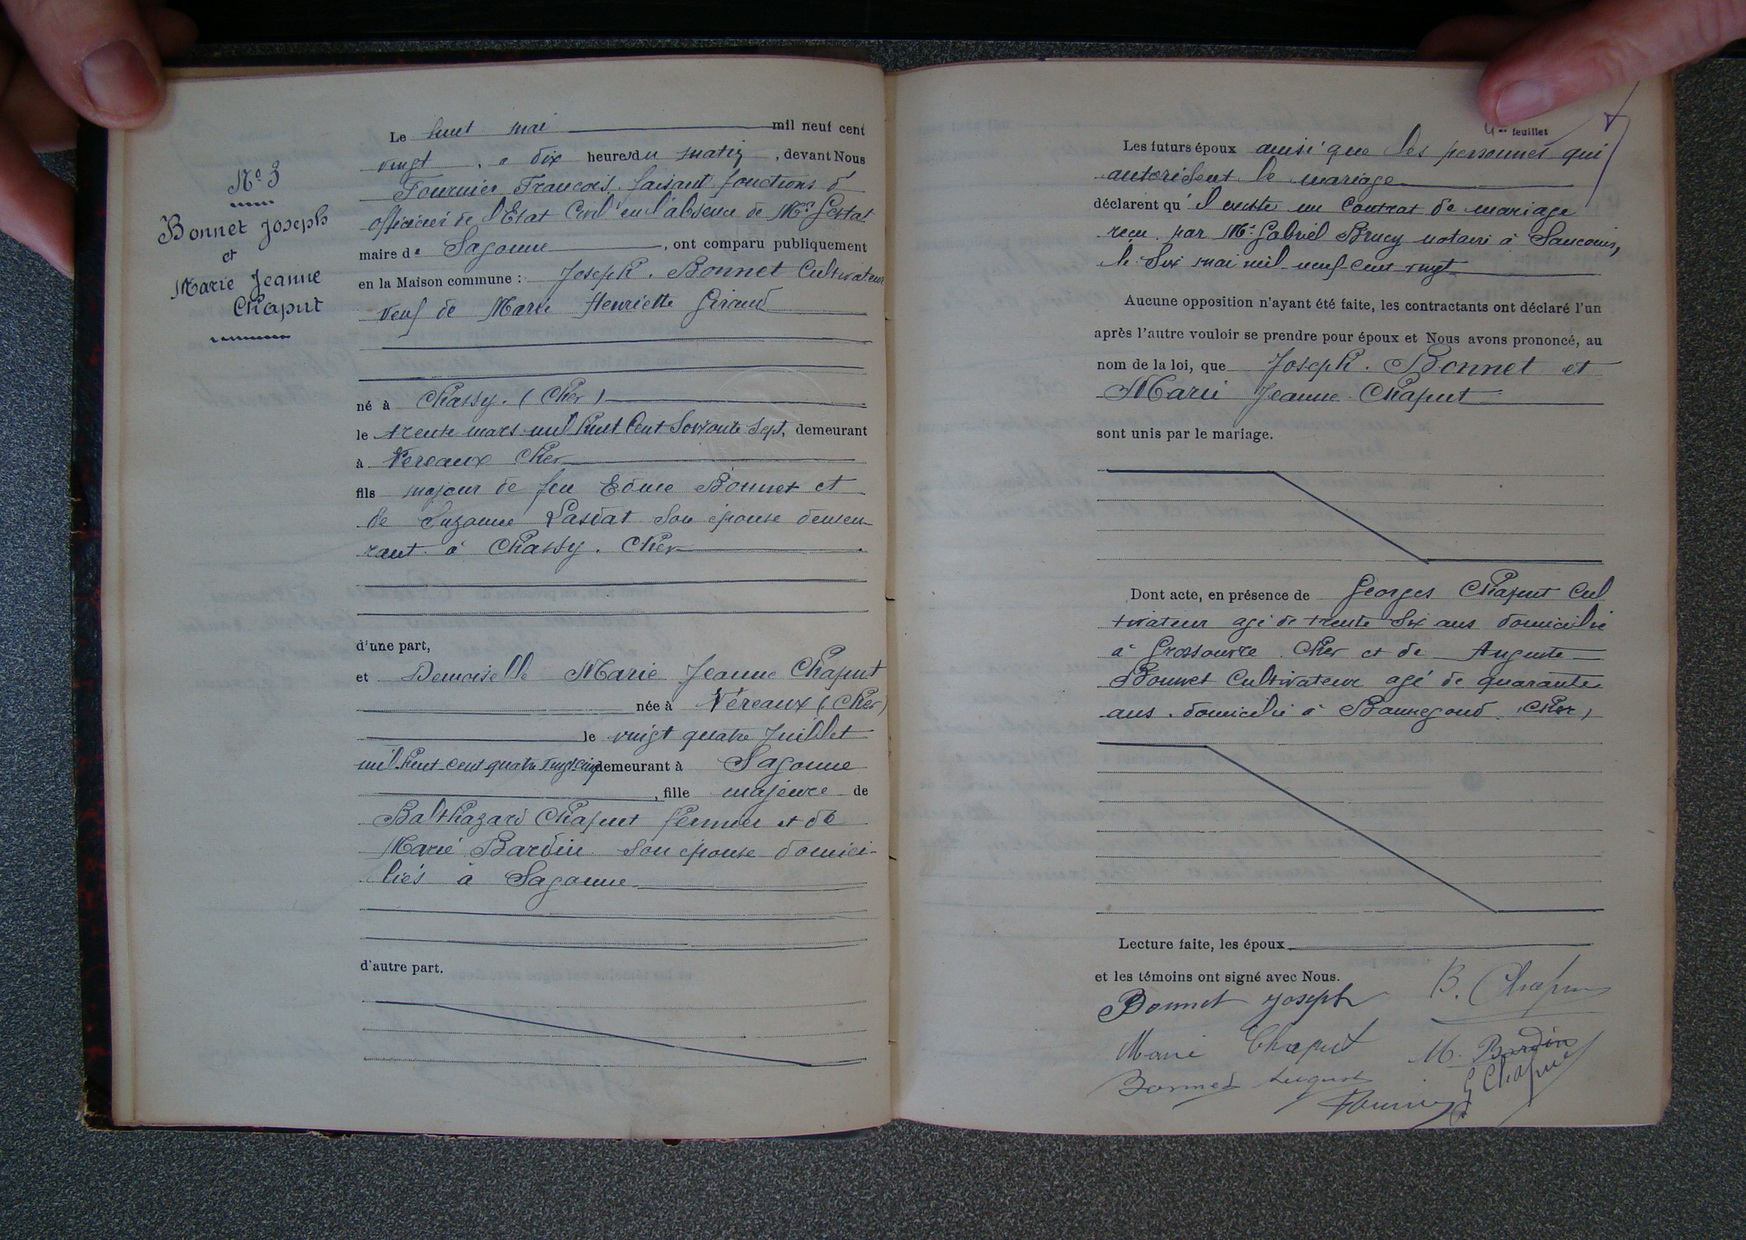 Nº 3
Bonnet Joseph
et
Marie Jeanne
Chaput
Le huit mai mil neuf cent
vingt, à dix heures du matin, devant Nous
Fournier François, faisant fonctions d'
officier de l'Etat Civil en l'absence de Mr
maire de Sagonne, ont comparu publiquement
en la Maison commune : Joseph. Bonnet Cultivateur
veuf de Marie Henriette Giraud
né à Chassy. (Cher)
le trente mars mil huit cent soixante sept, demeurant
à Vereaux Cher
fils majeur de feu Edme Bonnet et
de Suzanne son épouse demeu-
rant à Chassy. Cher
d'une part,
et Demoiselle Marie Jeanne Chaput
née à Véreaux (Cher)
le vingt quatre Juillet
mil huit cent quatre vingt cinq demeurant à Sagonne
, fille majeure de
Balthazard Chaput fermier et de
Marie Bardin son épouse domici-
liés à Sagonne
d'autre part.
4me feuillet
Les futurs époux ainsi que les personnes qui
autorisent le mariage
déclarent qu'il existe un contrat de mariage
reçu par Me Gabriel Brucy notaire à Sancoins,
le six mai mil neuf cent vingt
Aucune opposition n'ayant été faite, les contractants ont déclaré l'un
après l'autre vouloir se prendre pour époux et Nous avons prononcé, au
nom de la loi, que Joseph. Bonnet et
Marie Jeanne Chaput
sont unis par le mariage.
Dont acte, en présence de Georges Chaput Cul
tivateur agé de trente six ans domicilié
à Grossouvre Cher et de Auguste
Bonnet Cultivateur agé de quarante
ans domicilié à Bannegond (Cher)
Lecture faite, les époux
et les témoins ont signé avec Nous.
Bonnet Joseph B. Chaput
Marie Chaput M. Bardin
Bonnet August G Chaput
Fournier